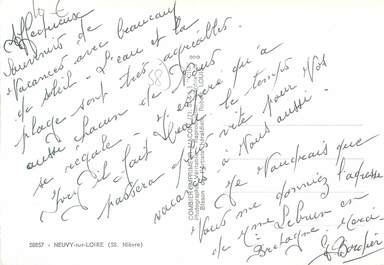 Affectueux
souvenirs de
vacances avec beaucoup
de soleil - L'eau et la
plage sont très agréables.
aussi chacun de nous
se régale - J'espère que à
Ivry il fait beau le temps
passera plus vite pour vos
vacances à Nous aussi -
Je voudrais que
vous me donniez l'adresse
de Mme Lebrun en
Bretagne Merci
58857 - NEUVY-sur-LOIRE (58. Nièvre)